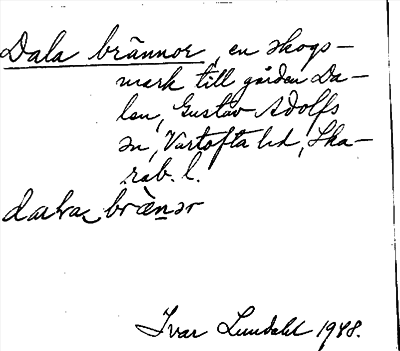 Dala brännor, en skogs-
mark till gården Da-
len, Gustav Adolfs
sn, Vartofta hd, Ska-
rab. l.
brä̀n̲ər
Ivar Lundahl 1948.